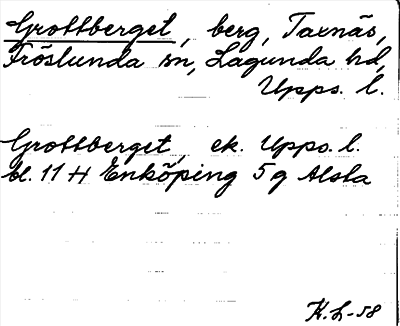 Grottberget, berg, Taxnäs,
Fröslunda sn, Lagunda hd,
Upps. l.
Grottberget, ek. Upps. l.
bl. 11 H Enköping 5 g Alsta
K.L-58